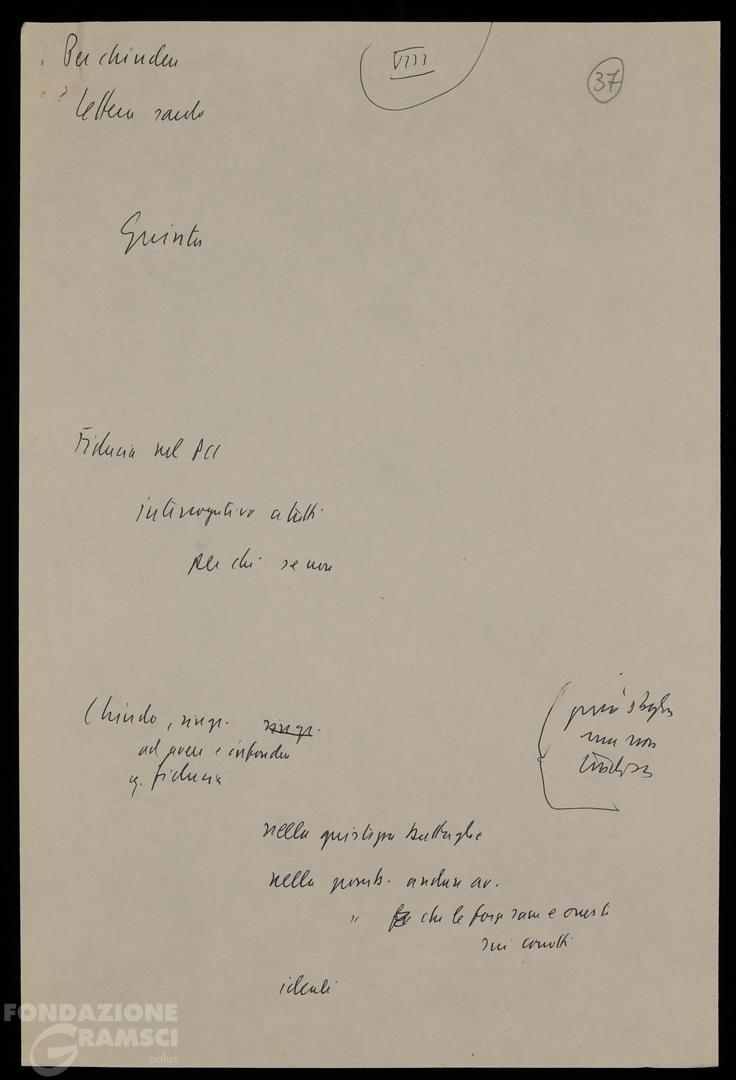 Per chiudere
VIII
37
lettera sardo
Giunta
Fiducia nel PCI
interrogativo a tutti
per chi se non
Chiudo, ringr. ringr.
ad avere e infondere
q. fiducia
può sbagliare
ma non
tradisce
nella giustezza battaglie
nella possib. andare av.
" che le forze sane e oneste
sui corrotti
ideali
FONDAZIONE
GRAMSCI
onlus